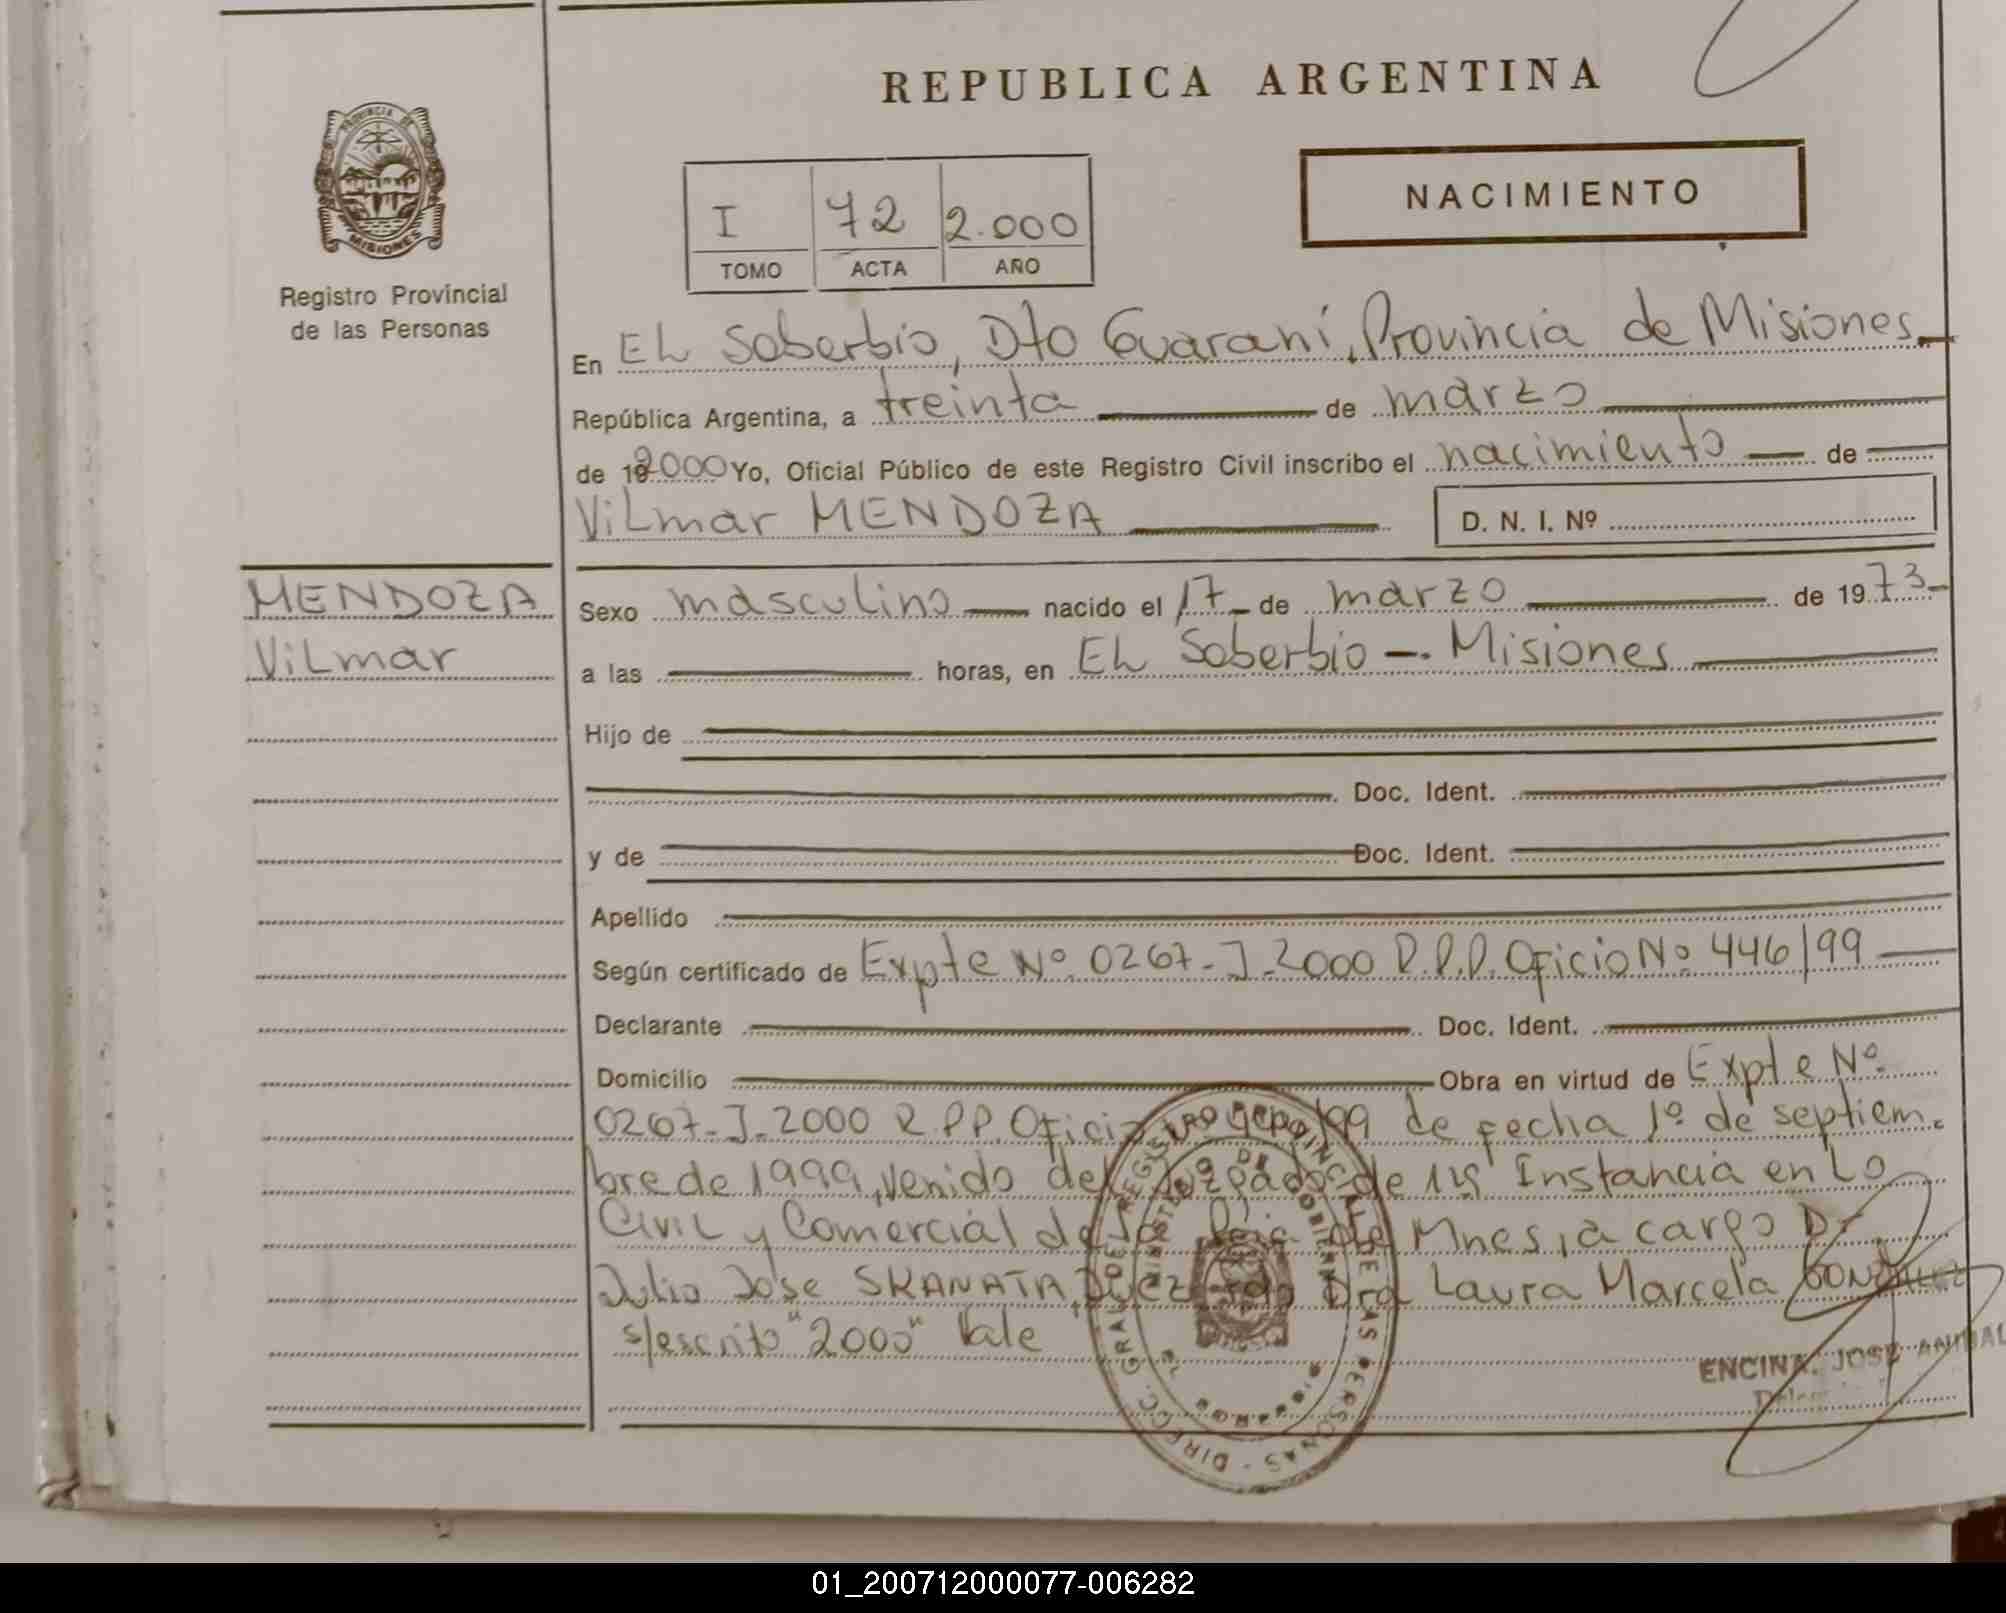 REPUBLICA ARGENTINA
PROVINCIA DE
MISIONES
Registro Provincial
de las Personas
I 72 2.000
TOMO ACTA AÑO
NACIMIENTO
En EL Soberbio, Dto Guaraní, Provincia de Misiones
República Argentina, a treinta de marzo
de 192000 Yo, Oficial Público de este Registro Civil inscribo el nacimiento de
Vilmar MENDOZA D. N. I. Nº
MENDOZA
Vilmar
Sexo masculino nacido el 17 de marzo de 1973
a las horas, en EL Soberbio -. Misiones
Hijo de
Doc. Ident.
y de Doc. Ident.
Apellido
Según certificado de Expte Nº 0267-J-2000 R.P.P. Oficio Nº 446/99
Declarante Doc. Ident.
Domicilio Obra en virtud de Expte Nº
0267-J-2000 R.P.P. Oficio /99 de fecha 1º de septiem-
bre de 1999, venido del Juzgado de 1ª Instancia en Lo
Civil y Comercial de Mnes, a cargo Dr
Julio Jose SKANATA, Juez Dra Laura Marcela GONZALEZ
s/escrito "2000" Vale
ENCINA, JOSE ANIBAL
DIRECC. GRAL DE REGISTRO PROVINCIAL DE LAS PERSONAS
MINISTERIO DE GOBIERNO
MISIONES
01_200712000077-006282